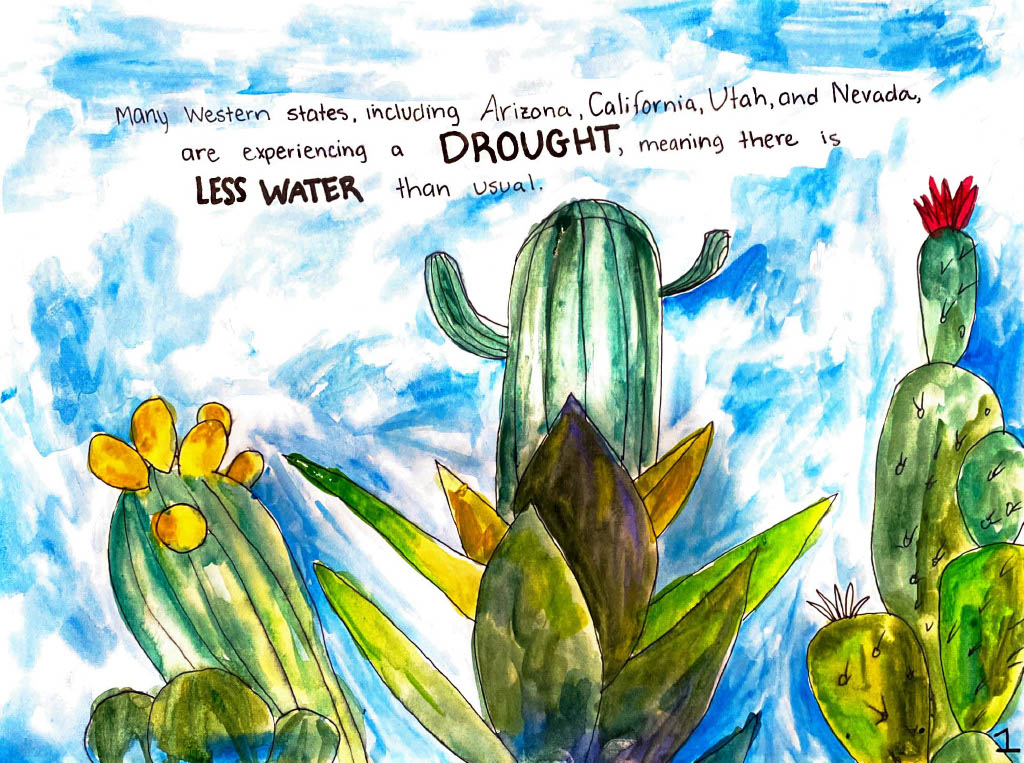 Many Western states, including Arizona, California, Utah, and Nevada,
are experiencing a DROUGHT, meaning there is
LESS WATER than usual.
1